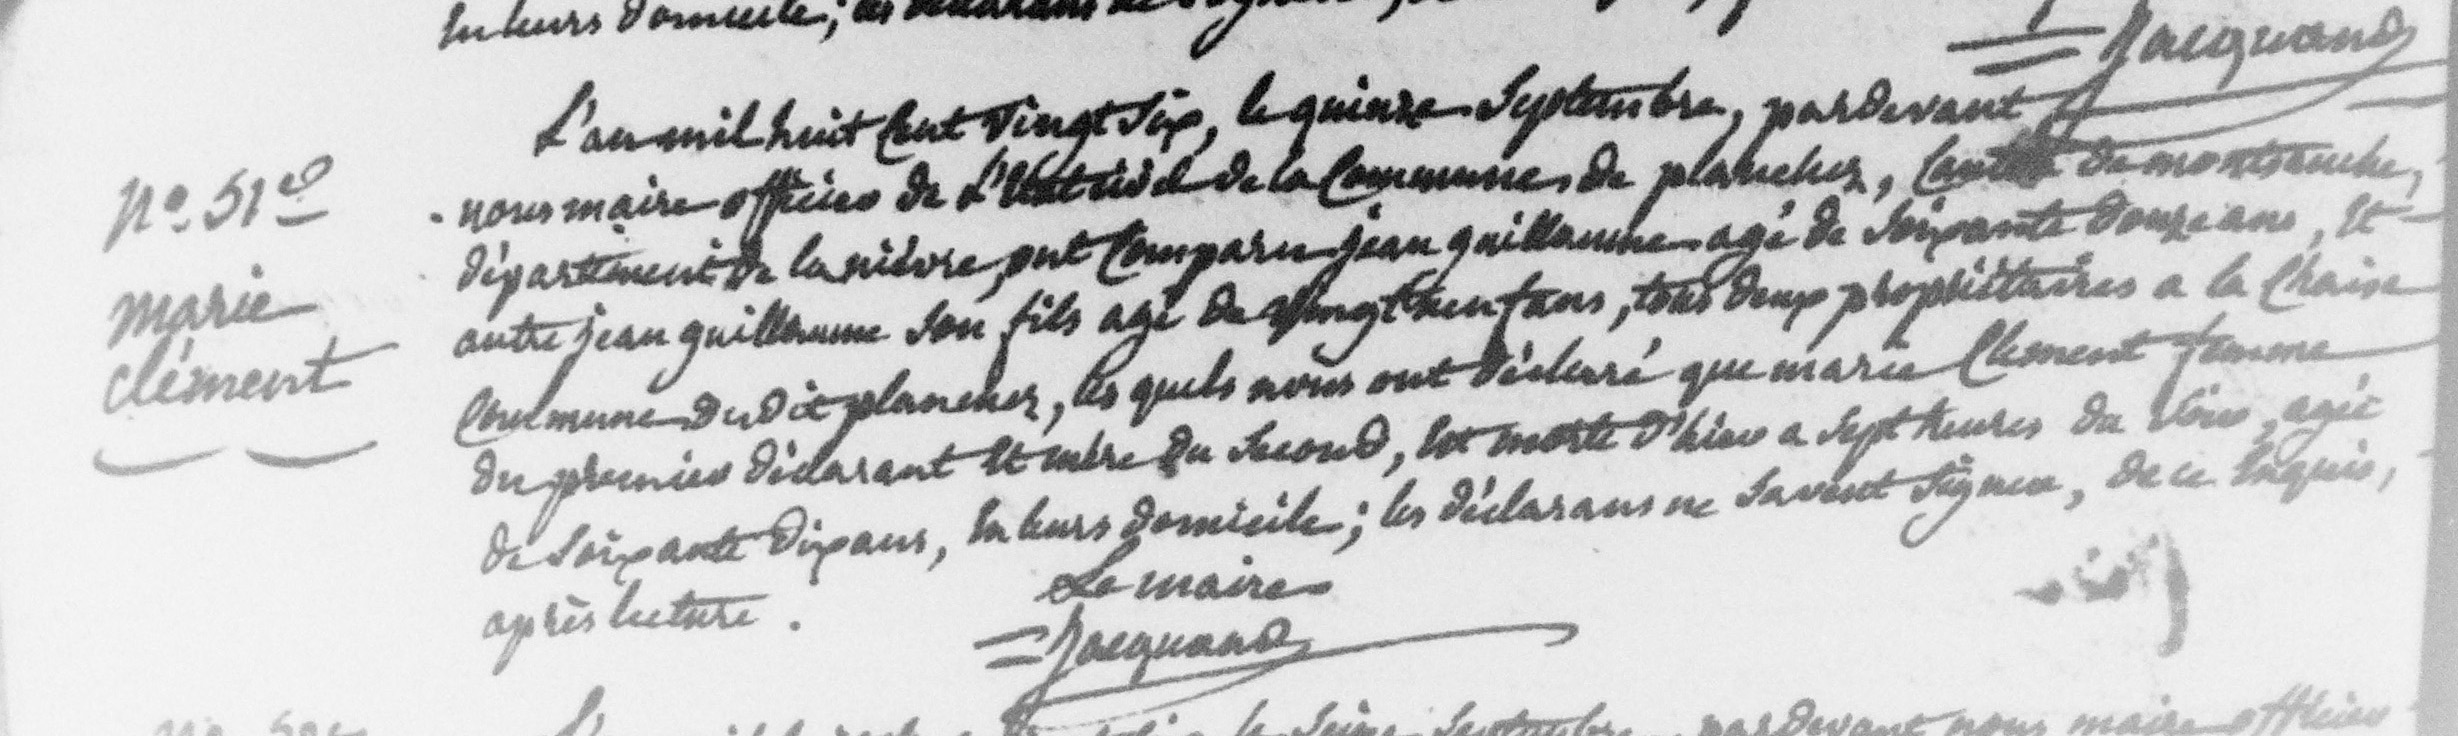 en leurs domicile; les déclarans ne
= Jacquand
L'an mil huit Cent vingt Six, le quinze Septembre, pardevant
N.o 51e
nous maire officier de L'Etat civil de la Commune de planchez, Canton de montsauche,
département de la nièvre, ont Comparu jean guillaume agé de Soixante douze ans, Et
marie
autre jean guillaume Son fils agé de vingt neuf ans, tous deux propriétaires a la Chaise
clément
Commune du dit planchez, les quels nous ont déclaré que marie Clément femme
du premier déclarant Et mère du Second, Est morte d'hier a Sept heures du Soir, agée
de Soixante dix ans, En leurs domicile; les déclarans ne Savent Signer, de ce Enquis,
après lecture.
Le maire
= Jacquand
le Seize Septembre pardevant nous maire officier